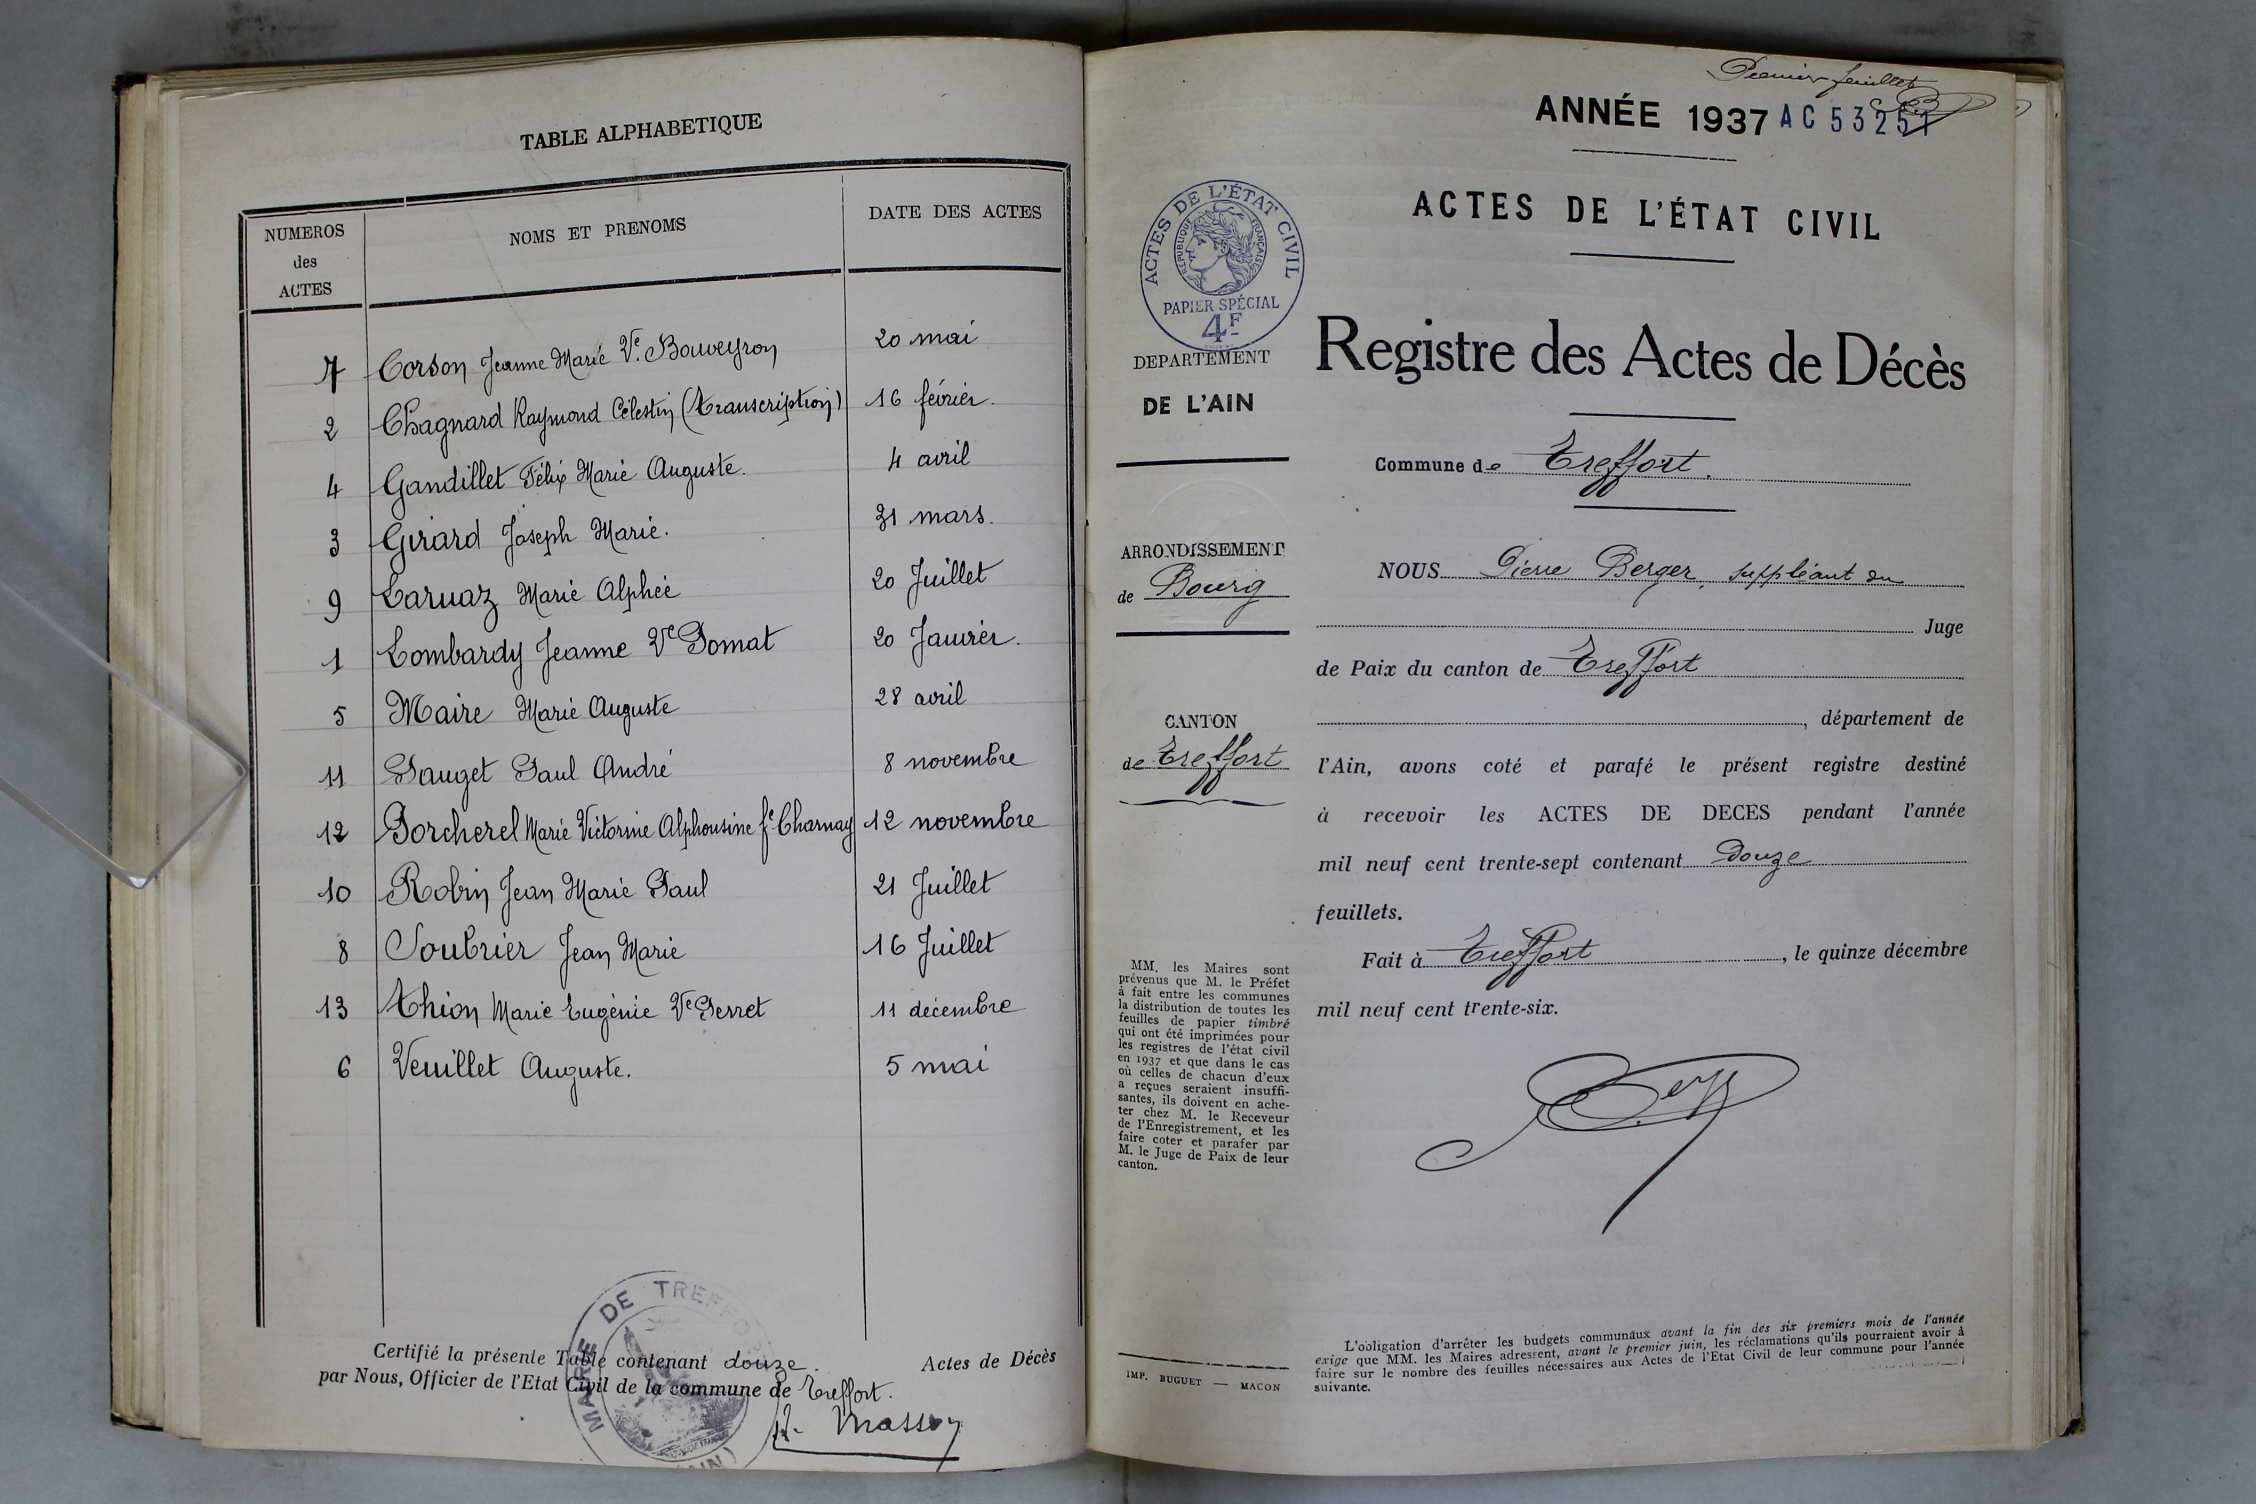 TABLE ALPHABETIQUE
NUMEROS des ACTES
NOMS ET PRENOMS
DATE DES ACTES
7 Corson Jeanne Marie Ve. Bouveyron 20 mai
2 Chagnard Raymond Célestin (transcription) 16 février.
4 Gandillet Félix Marie Auguste. 4 avril
3 Girard Joseph Marie. 31 mars.
9 Laruaz Marie Alphée 20 Juillet
1 Lombardy Jeanne Ve Pomat 20 Janvier.
5 Maire Marie Auguste 28 avril
11 Pauget Paul André 8 novembre
12 Porcherel Marie Victorine Alphonsine fe Charnay 12 novembre
10 Robin Jean Marie Paul 21 Juillet
8 Soubrier Jean Marie 16 Juillet
13 Thion Marie Eugénie Ve Perret 11 décembre
6 Veuillet Auguste. 5 mai
Certifié la présente Table contenant douze. Actes de Décès
par Nous, Officier de l'Etat Civil de la commune de Treffort.
MAIRIE DE TREFFORT
(AIN)
Masson
Premier feuillet
ANNÉE 1937 AC 53251
ACTES DE L'ÉTAT CIVIL
ACTES DE L'ÉTAT CIVIL
RÉPUBLIQUE FRANÇAISE
PAPIER SPÉCIAL
4F
DEPARTEMENT
DE L'AIN
ARRONDISSEMENT
de Bourg
CANTON
de Treffort
MM. les Maires sont
prévenus que M. le Préfet
à fait entre les communes
la distribution de toutes les
feuilles de papier timbré
qui ont été imprimées pour
les registres de l'état civil
en 1937 et que dans le cas
où celles de chacun d'eux
a reçues seraient insuffi-
santes, ils doivent en ache-
ter chez M. le Receveur
de l'Enregistrement, et les
faire coter et parafer par
M. le Juge de Paix de leur
canton.
IMP. BUGUET — MACON
Registre des Actes de Décès
Commune de Treffort.
NOUS Pierre Berger, suppléant du
Juge
de Paix du canton de Treffort
, département de
l'Ain, avons coté et parafé le présent registre destiné
à recevoir les ACTES DE DECES pendant l'année
mil neuf cent trente-sept contenant Douze
feuillets.
Fait à Treffort, le quinze décembre
mil neuf cent trente-six.
L'obligation d'arrêter les budgets communaux avant la fin des six premiers mois de l'année
exige que MM. les Maires adressent, avant le premier juin, les réclamations qu'ils pourraient avoir à
faire sur le nombre des feuilles nécessaires aux Actes de l'Etat Civil de leur commune pour l'année
suivante.